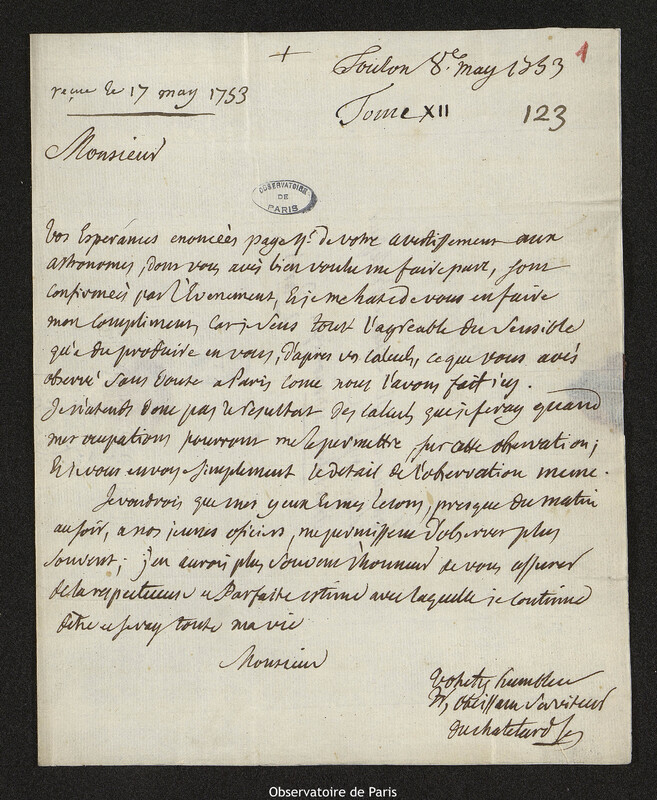 1
Toulon 8e. may 1753
reçue le 17 may 1753
Tome XII 123
Monsieur
OBSERVATOIRE
DE
PARIS
Vos Esperances enoncées page de votre avertissement aux
astronomes, dont vous avés bien voulu me faire part, sont
confirmées par l'Evenement, Et je me hate de vous en faire
mon compliment, Car je sens tout l'agreable du sensible
qu'a du produire en vous, d'apres vos calculs, ce que vous avés
observé sans doute a Paris come nous l'avons fait icy.
Je n'atends donc pas le resultat des calculs que je feray quand
mes ocupations pourront me le permettre, sur cette observation;
Et je vous envoye simplement le detail de l'observation meme.
Je voudrois que mes yeux Et mes lecons, presque du matin
au soir, a nos jeunes oficiers, me permissent d'observer plus
souvent; j'en aurois plus souvent l'honneur de vous assurer
de la respectueuse et Parfaite estime avec laquelle je continue
detre et seray toute ma vie
Monsieur
Votre tres humble et
tres obeissant serviteur
Du chatelard
Observatoire de Paris